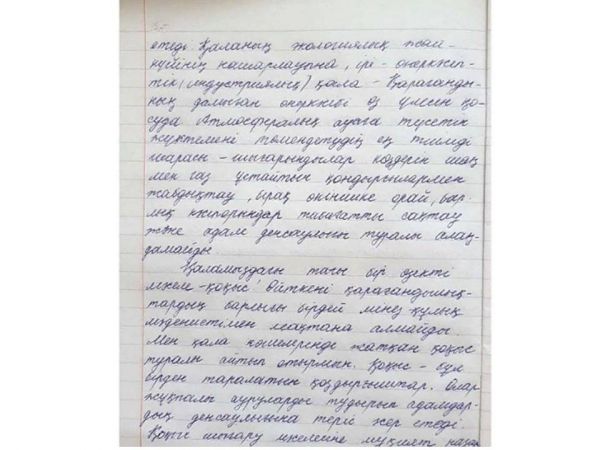 етеді. Қаланың экологиялық жағ-
күйінің нашарлауына, ірі - өнеркәсіп-
тік (индустриялық) қала - Қараганды-
ның дамыған өнеркәсібі өз үлесін қо-
суда. Атмосфералық ауаға түсетін
жүктемені төмендетудің ең тиімді
шарасы - шығарындылар көздерін шаң
мен газ ұстайтын қондырғылармен
жабдықтау, бірақ өкінішке орай, бар-
лық кәсіпорындар тиісатты сақтау
және адам денсаулығы туралы алаң-
дамайды.
Қаламыздағы тағы бір өзекті
мәселе - қоқыс! Өйткені қарағандылық-
тардың барлығы бірдей мінез құлық
мәдениетімен мақтана алмайды.
Мен қала көшелерінде жатқан қоқыс
туралы айтып отырмын. Қоқыс - бұл
бірден таралатын қоздырғыштар. Олар
жұқпалы ауруларды тудырып адамдар-
дың денсаулығына теріс әсер етеді.
Қоқыс шығару мәселесіне мұқият назар